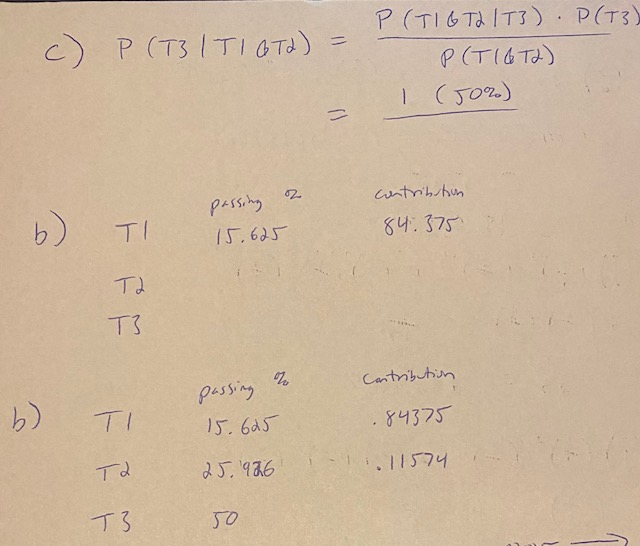 c) P (T3 | T1 & T2) = P (T1 & T2 | T3) · P (T3)
P (T1 & T2)
= 1 (50%)
passing % contribution
b) T1 15.625 84.375
T2
T3
passing % contribution
b) T1 15.625 .84375
T2 25.926 .11574
T3 50